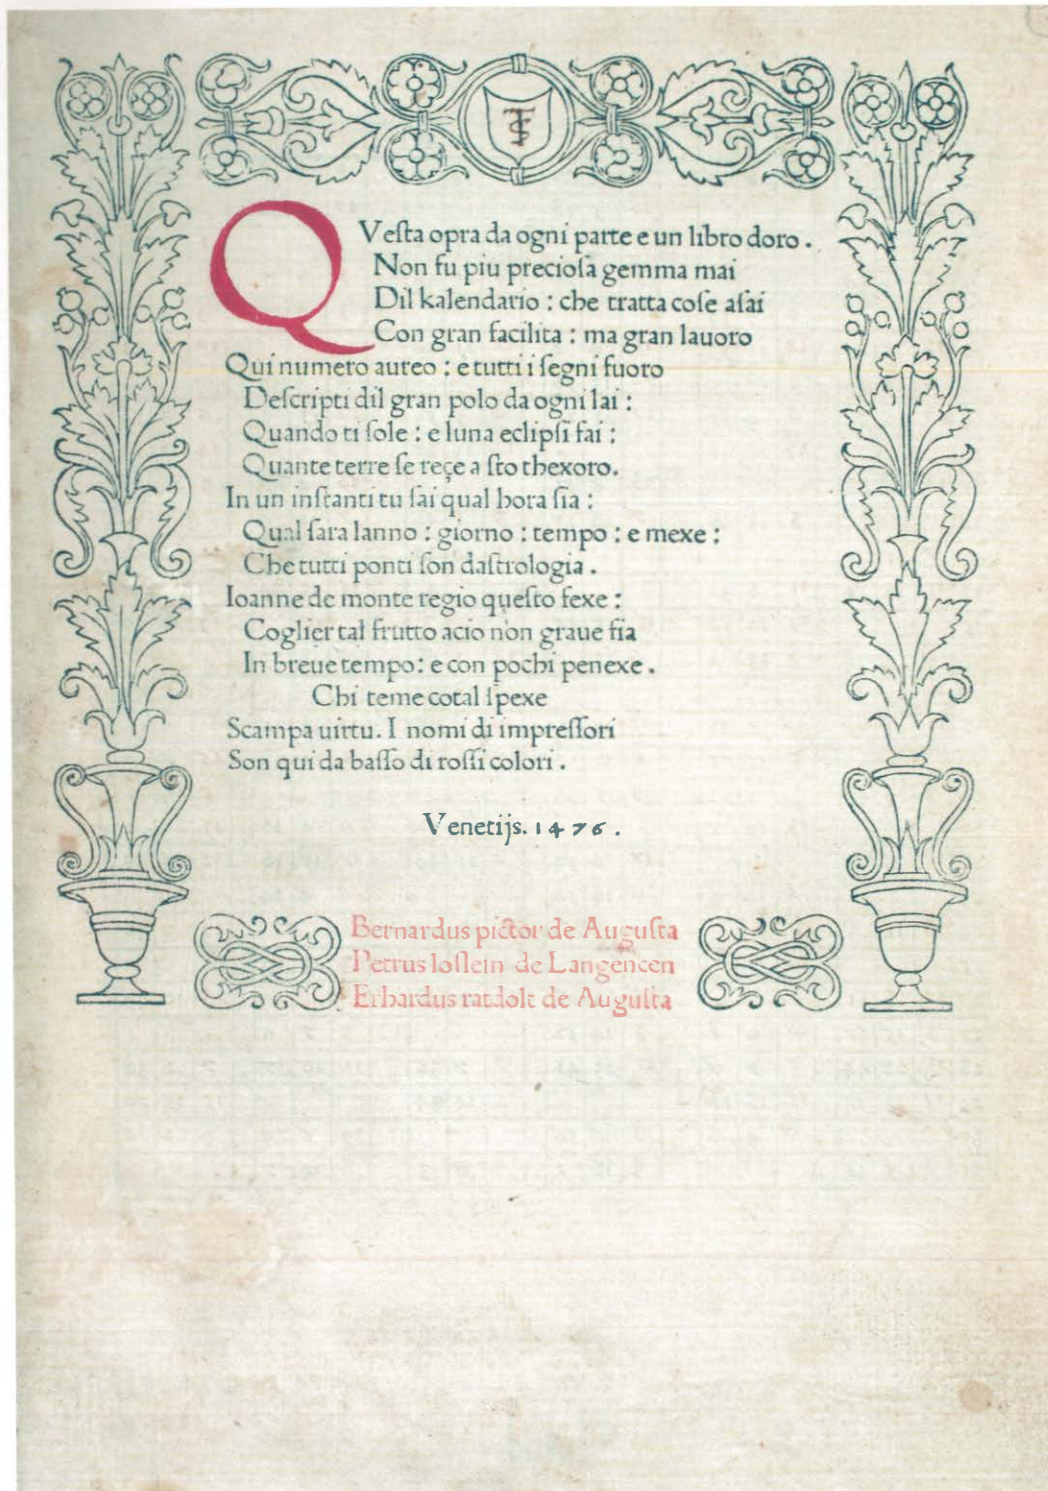 QVeſta opra da ogni parte e un libro doro.
Non fu piu precioſa gemma mai
Dil kalendario : che tratta coſe aſai
Con gran facilita : ma gran lauoro
Qui numero aureo : e tutti i ſegni fuoro
Deſcripti dil gran polo da ogni lai :
Quando ti ſole : e luna eclipſi fai :
Quante terre ſe reçe a ſto thexoro.
In un inſtanti tu ſai qual hora ſia :
Qual ſara lanno : giorno : tempo : e mexe :
Che tutti ponti ſon daſtrologia.
Ioanne de monte regio queſto fexe :
Coglier tal frutto acio non graue ſia
In breue tempo : e con pochi penexe.
Chi teme cotal ſpexe
Scampa uirtu. I nomi di impreſſori
Son qui da baſſo di roſſi colori.
Venetijs. 1476.
Bernardus pictor de Auguſta
Petrus loſlein de Langencen
Erhardus ratdolt de Auguſta